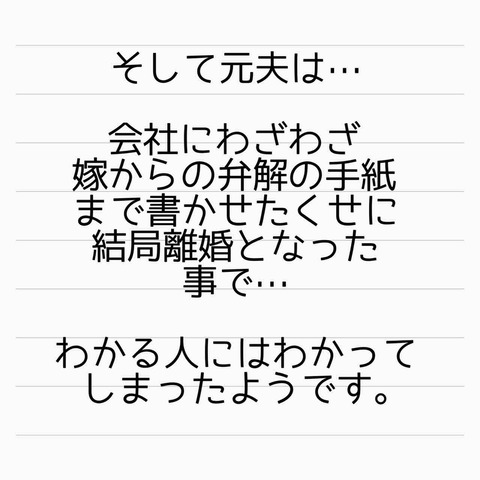 そして元夫は…
会社にわざわざ
嫁からの弁解の手紙
まで書かせたくせに
結局離婚となった
事で…
わかる人にはわかって
しまったようです。